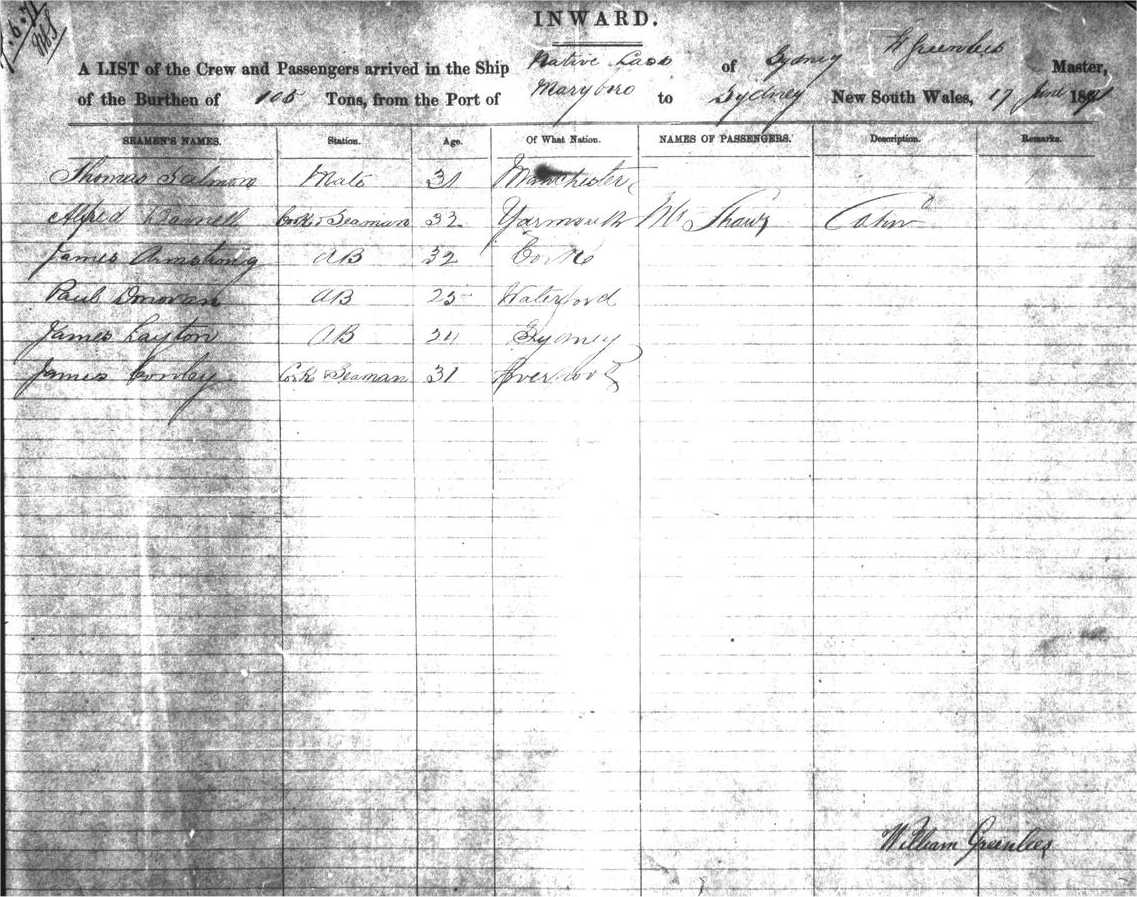 INWARD.
A LIST of the Crew and Passengers arrived in the Ship Native Lass of Sydney W Greenlees Master,
of the Burthen of 105 Tons, from the Port of Maryboro to Sydney New South Wales, 17 June 1871
SEAMEN'S NAMES. Station. Age. Of What Nation. NAMES OF PASSENGERS. Description. Remarks.
Thomas Salmon Mate 31 Manchester
Alfred Cook & Seaman 32 Yarmouth Mr Shaw Cabin
James Armstrong AB 32 Cork
Paul Donovan AB 25 Waterford
James Layton AB 24 Sydney
James Conley Cook & Seaman 31 Liverpool
William Greenlees